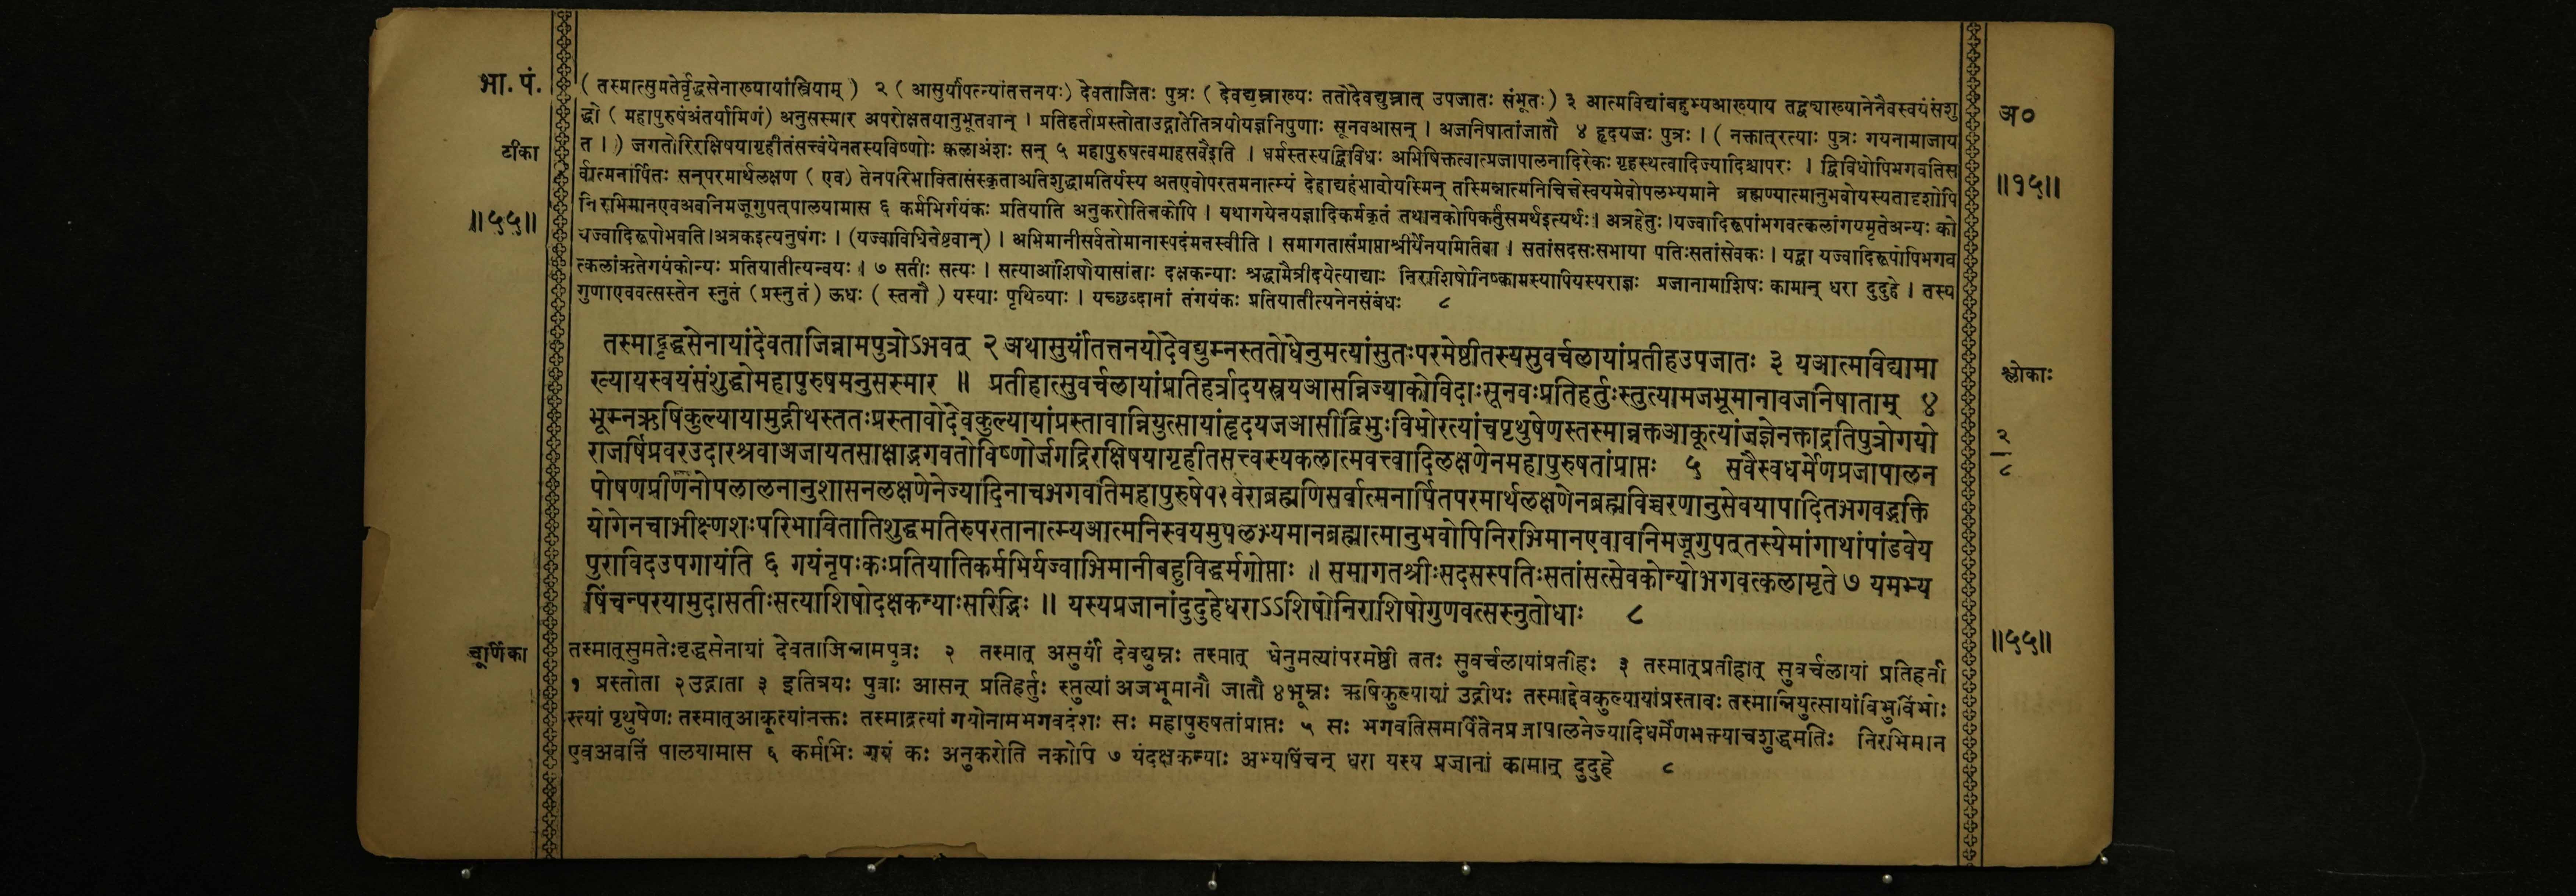 भा. पं.
टीका
॥५५॥
( तस्मात्सुमतेर्वृद्धसेनाख्यायांस्त्रियाम् ) २ ( आसुर्यांपत्न्यांतत्तनयः) देवताजितः पुत्रः ( देवद्युम्नाख्यः ततोदेवद्युम्नात् उपजातः संभूतः ) ३ आत्मविद्यांबहुभ्यआख्याय तद्व्याख्यानेनैवस्वयंसंशु
द्धो ( महापुरुषंअंतर्यामिणं) अनुसस्मार अपरोक्षतयानुभूतवान् । प्रतिहर्ताप्रस्तोताउद्गातेतित्रयोयज्ञनिपुणाः सूनवआसन् । अजनिषातांजातौ ४ हृदयजः पुत्रः । ( नक्तात्‌रत्याः पुत्रः गयनामाजाय
त । ) जगतोरिरक्षिषयागृहीतंसत्त्वंयेनतस्यविष्णोः कलाअंशः सन् ५ महापुरुषत्वमाहसवैइति । धर्मस्तस्यद्विविधः अभिषिक्तत्वात्प्रजापालनादिरेकः गृहस्थत्वादिज्यादिश्चापरः । द्विविधोपिभगवतिस
र्वात्मनार्पितः सन्‌परमार्थलक्षण ( एव) तेनपरिभावितासंस्कृताअतिशुद्धामतिर्यस्य अतएवोपरतमनात्म्यं देहाद्यहंभावोयस्मिन् तस्मिन्नात्मनिचित्तेस्वयमेवोपलभ्यमाने ब्रह्मण्यात्मानुभवोयस्यतादृशोपि
निरभिमानएवअवनिमजूगुपत्‌पालयामास ६ कर्मभिर्गयंकः प्रतियाति अनुकरोतिनकोपि । यथागयेनयज्ञादिकर्मकृतं तथानकोपिकर्तुंसमर्थइत्यर्थः। अत्रहेतुः ।यज्वादिरूपांभगवत्कलांगयमृतेअन्यः को
यज्वादिरूपोभवति।अत्रकइत्यनुषंगः । (यज्वाविधिनेष्टवान्) । अभिमानीसर्वतोमानास्पदंमनस्वीति । समागतासंप्राप्ताश्रीर्येनयमितिवा । सतांसदसःसभाया पतिःसतांसेवकः । यद्वा यज्वादिरूपोपिभगव
त्कलांऋतेगयंकोन्यः प्रतियातीत्यन्वयः । ७ सतीः सत्यः । सत्याआशिषोयासांताः दक्षकन्याः श्रद्धामैत्रीदयेत्याद्याः निराशिषोनिष्कामस्यापियस्यराज्ञः प्रजानामाशिषः कामान् धरा दुदुहे । तस्य
गुणाएववत्सस्तेन स्नुतं (प्रस्नुतं ) ऊधः ( स्तनौ ) यस्याः पृथिव्याः । यच्छब्दानां तंगयंकः प्रतियातीत्यनेनसंबंधः ८
तस्माद्वृद्धसेनायांदेवताजिन्नामपुत्रोऽभवत् २ अथासुर्यांतत्तनयोदेवद्युम्नस्ततोधेनुमत्यांसुतःपरमेष्ठीतस्यसुवर्चलायांप्रतीहउपजातः ३ यआत्मविद्यामा
ख्यायस्वयंसंशुद्धोमहापुरुषमनुसस्मार ॥ प्रतीहात्सुवर्चलायांप्रतिहर्त्रादयस्त्रयआसन्निज्याकोविदाःसूनवःप्रतिहर्तुःस्तुत्यामजभूमानावजनिषाताम् ४
भूम्नऋषिकुल्यायामुद्गीथस्ततःप्रस्तावोदेवकुल्यायांप्रस्तावान्नियुत्सायांहृदयजआसीद्विभुःविभोरत्यांचपृथुषेणस्तस्मान्नक्तआकूत्यांजज्ञेनक्ताद्रतिपुत्रोगयो
राजर्षिप्रवरउदारश्रवाअजायतसाक्षाद्भगवतोविष्णोर्जगद्रिरक्षिषयागृहीतसत्त्वस्यकलात्मवत्त्वादिलक्षणेनमहापुरुषतांप्राप्तः ५ सवैस्वधर्मेणप्रजापालन
पोषणप्रीणनोपलालनानुशासनलक्षणेनेज्यादिनाचभगवतिमहापुरुषेपरावरेब्रह्मणिसर्वात्मनार्पितपरमार्थलक्षणेनब्रह्मविच्चरणानुसेवयापादितभगवद्भक्ति
योगेनचाभीक्ष्णशःपरिभावितातिशुद्धमतिरुपरतानात्म्यआत्मनिस्वयमुपलभ्यमानब्रह्मात्मानुभवोपिनिरभिमानएवावनिमजूगुपत्‌तस्येमांगाथांपांडवेय
पुराविदउपगायंति ६ गयंनृपःकःप्रतियातिकर्मभिर्यज्वाभिमानीबहुविद्धर्मगोप्ताः ॥ समागतश्रीःसदसस्पतिःसतांसत्सेवकोन्योभगवत्कलामृते ७ यमभ्य
षिंचन्परयामुदासतीःसत्याशिषोदक्षकन्याःसरिद्भिः ॥ यस्यप्रजानांदुदुहेधराऽऽशिषोनिराशिषोगुणवत्सस्नुतोधाः ८
चूर्णिका
तस्मात्‌सुमतेःवृद्धसेनायां देवताजिन्नामपुत्रः २ तस्मात् असुर्यां देवद्युम्नः तस्मात् धेनुमत्यांपरमेष्ठी ततः सुवर्चलायांप्रतीहः ३ तस्मात्‌प्रतीहात् सुवर्चलायां प्रतिहर्ता
१ प्रस्तोता २उद्गाता ३ इतित्रयः पुत्राः आसन् प्रतिहर्तुः स्तुत्यां अजभूमानौ जातौ ४भूम्नः ऋषिकुल्यायां उद्गीथः तस्माद्देवकुल्यायांप्रस्तावः तस्मान्नियुत्सायांविभुर्विभोः
स्त्यां पृथुषेणः तस्मात्‌आकूत्यांनक्तः तस्माद्रत्यां गयोनामभगवदंशः सः महापुरुषतांप्राप्तः ५ सः भगवतिसमर्पितेनप्रजापालनेज्यादिधर्मेणभक्त्याचशुद्धमतिः निरभिमान
एवअवनिं पालयामास ६ कर्मभिः गयं कः अनुकरोति नकोपि ७ यंदक्षकन्याः अभ्यषिंचन् धरा यस्य प्रजानां कामान् दुदुहे ८
अ०
॥१५॥
श्लोकाः
२
८
॥५५॥